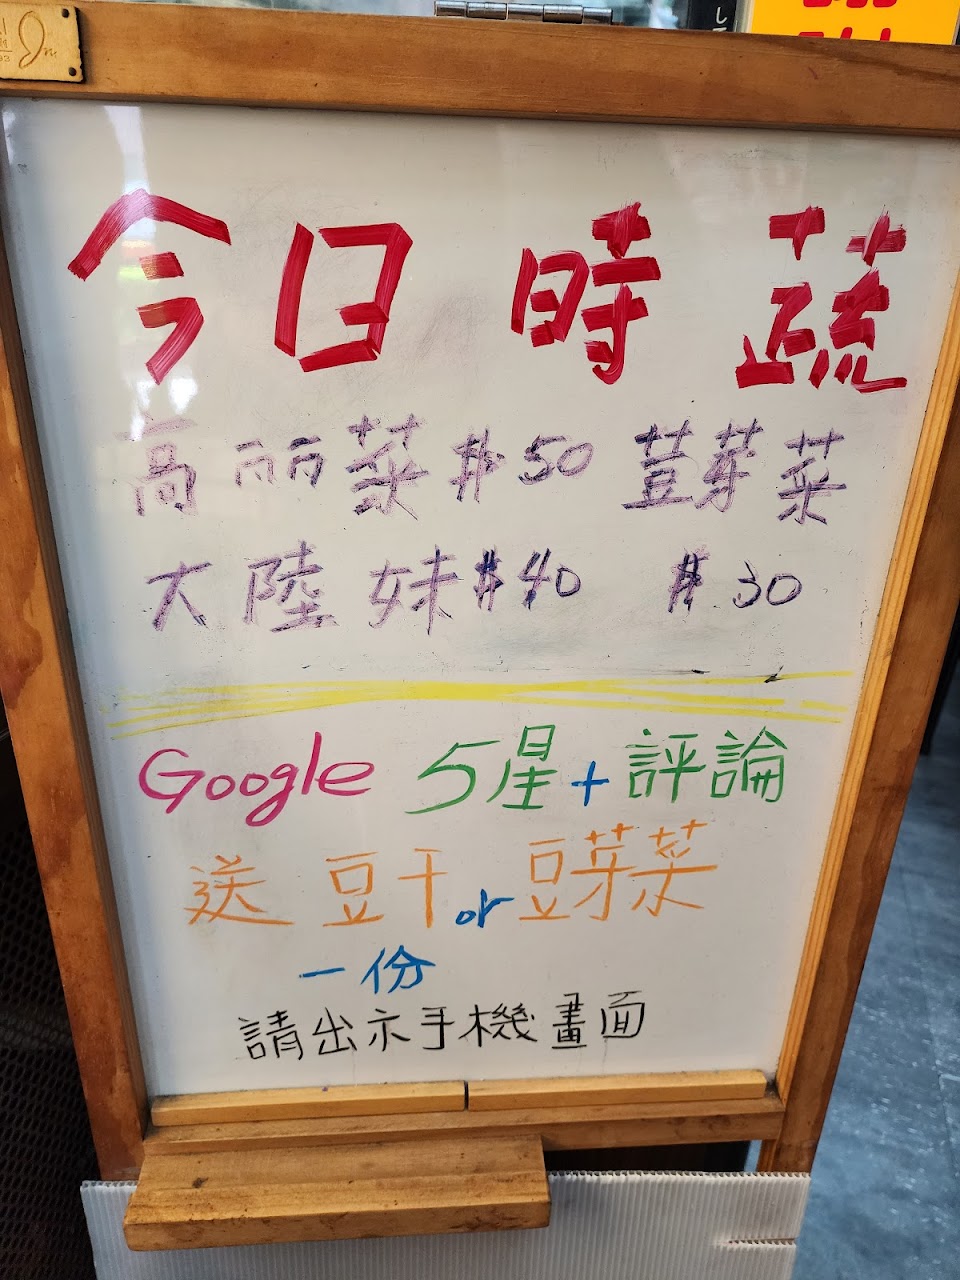 今日時蔬
高丽菜 $50 荳芽菜
大陸妹 $40 $30
Google 5星+評論
送豆干or豆芽菜
一份
請出示手機畫面